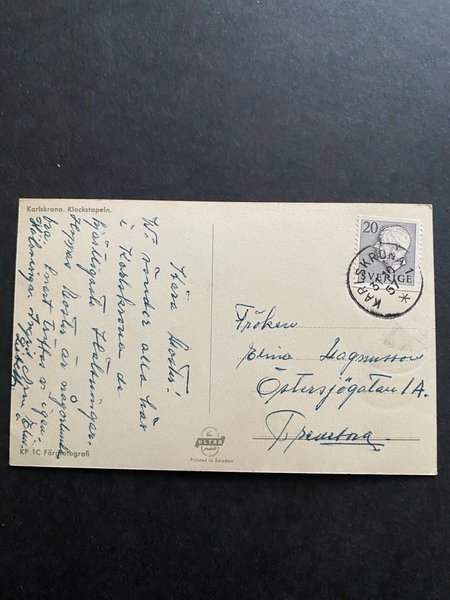 Karlskrona. Klockstapeln.
Kära Moster!
Vi sänder alla här
i Karlskrona de
hjärtligaste hälsningar.
Hoppas Moster är någorlunda
bra. Snart träffas vi igen.
Hälsningar Ingrid
KP 1C Färgfotografi
ULTRA
Printed in Sweden
20
SVERIGE
KARLSKRONA 1
Fröken
Elina Magnusson
Östersjögatan 1A.
Trelleborg